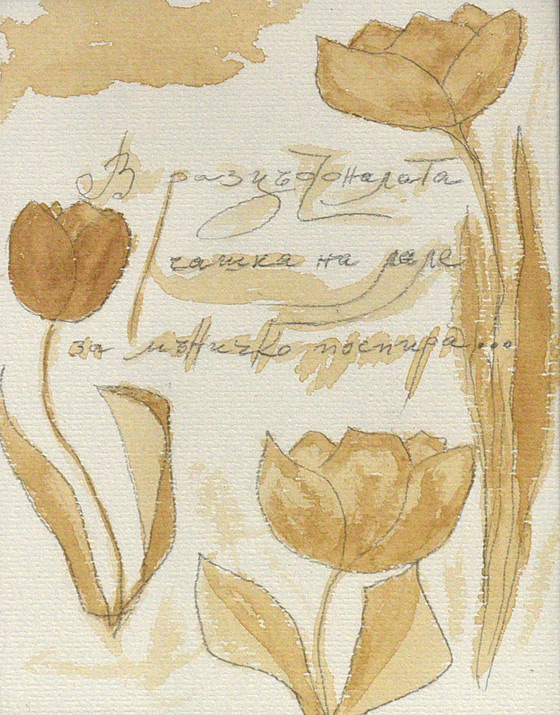 В разцъфналата
чашка на лале
за мъничко поспира...